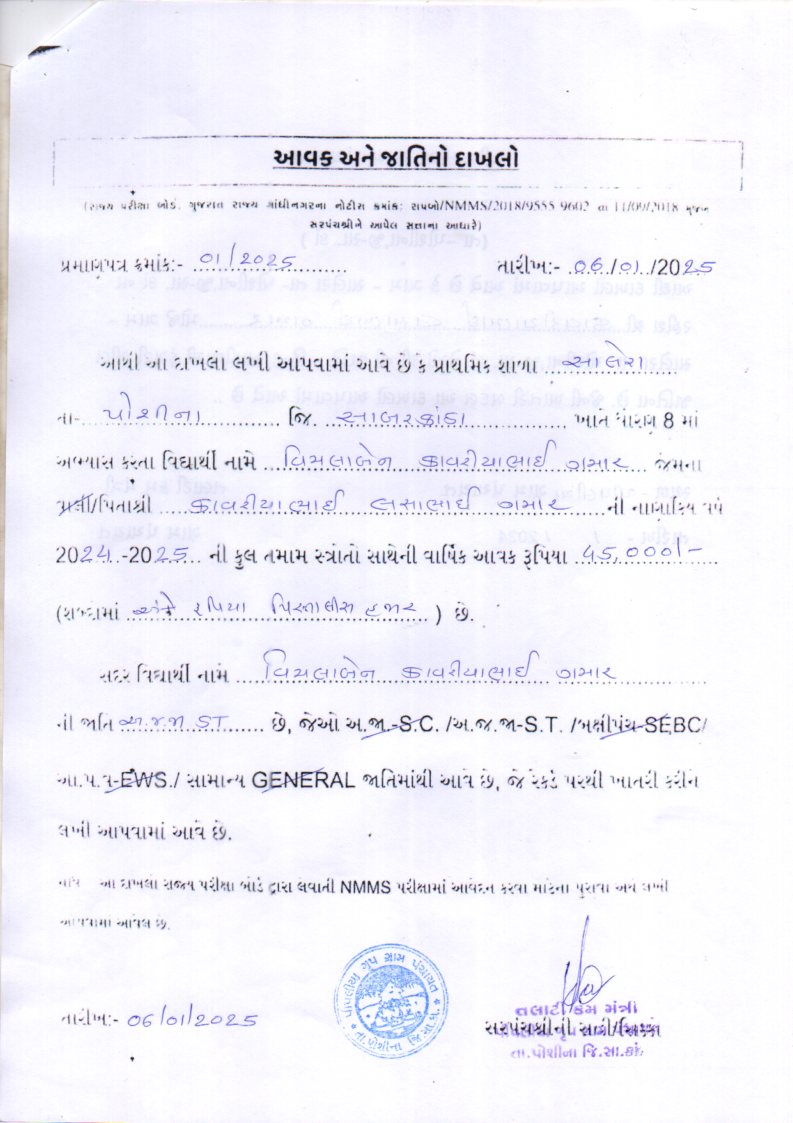 આવક અને જાતિનો દાખલો
(રાજ્ય પરીક્ષા બોર્ડ, ગુજરાત રાજ્ય ગાંધીનગરના નોટીસ ક્રમાંક: રાપબો/NMMS/2018/9555-9602 તા 11/09/2018 મુજબ
સરપંચશ્રીને આપેલ સત્તાના આધારે)
પ્રમાણપત્ર ક્રમાંક:- 01/2025 તારીખ:- 06/01/2025
આથી આ દાખલો લખી આપવામાં આવે છે કે પ્રાથમિક શાળા સાલેરા
તા- પોશીના જિ. સાબરકાંઠા ખાતે ધોરણ 8 માં
અભ્યાસ કરતા વિદ્યાર્થી નામે વિમલાબેન કાવરીયાભાઈ ગમાર જેમના
વાલી/પિતાશ્રી કાવરીયાભાઈ લસાભાઈ ગમાર ની નાણાકિય વર્ષ
2024-2025 ની કુલ તમામ સ્ત્રોતો સાથેની વાર્ષિક આવક રૂપિયા 45,000/-
(શબ્દોમાં અંકે રૂપિયા પિસ્તાલીસ હજાર ) છે.
સદર વિદ્યાર્થી નામે વિમલાબેન કાવરીયાભાઈ ગમાર
ની જાતિ અ.જ.જા ST છે, જેઓ અ.જા.-S.C. /અ.જ.જા-S.T. /બક્ષીપંચ-SEBC/
આ.પ.વ-EWS./ સામાન્ય GENERAL જાતિમાંથી આવે છે, જે રેકર્ડ પરથી ખાતરી કરીને
લખી આપવામાં આવે છે.
નોંધ આ દાખલો રાજ્ય પરીક્ષા બોર્ડ દ્વારા લેવાતી NMMS પરીક્ષામાં આવેદન કરવા માટેના પુરાવા અર્થે લખી
આપવામાં આવેલ છે.
ગૃપ ગ્રામ પંચાયત
તા.પોશીના જિ.સા.કાં.
તલાટી કમ મંત્રી
તારીખ:- 06/01/2025 સરપંચશ્રીની સહી/સિક્કા
તા.પોશીના જિ.સા.કાં.